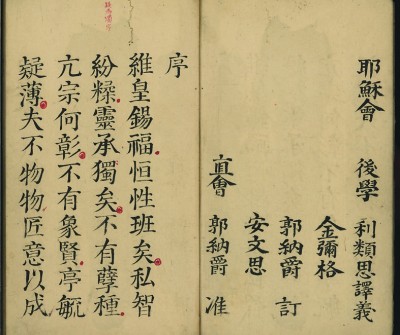 耶穌會 後學 利類思譯義
金彌格
郭納爵 訂
安文思
直會 郭納爵 准
序
維皇錫福恒性班矣私智
紛糅靈承獨矣不有孽種
亢宗何彰不有象賢亭毓
疑薄夫不物物匠意以成